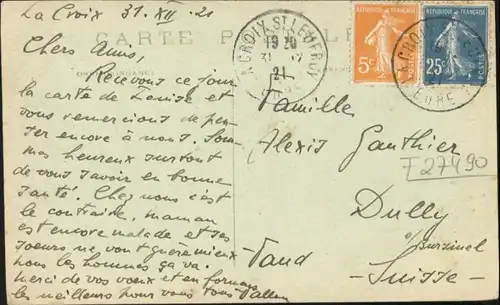 La Croix 31. XII. 21
CARTE POSTALE
Chers Amis,
Recevons ce jour
la carte de Louise et
vous remercions de pen-
ser encore à nous. Som-
mes heureux surtout
de vous savoir en bonne
santé. Chez nous c'est
le contraire, maman
est encore malade et ses
soeurs ne vont guère mieux
nous les hommes ça va.
Merci de vos voeux et en formons
les meilleurs pour vous tous
LA CROIX-ST LEUFROY
19 20
31 12
21
EURE
5c
POSTES
25c
POSTES
LA CROIX
EURE
Famille
Alexis Gauthier
F27490
Dully
s/Bursinel
Vaud
Suisse